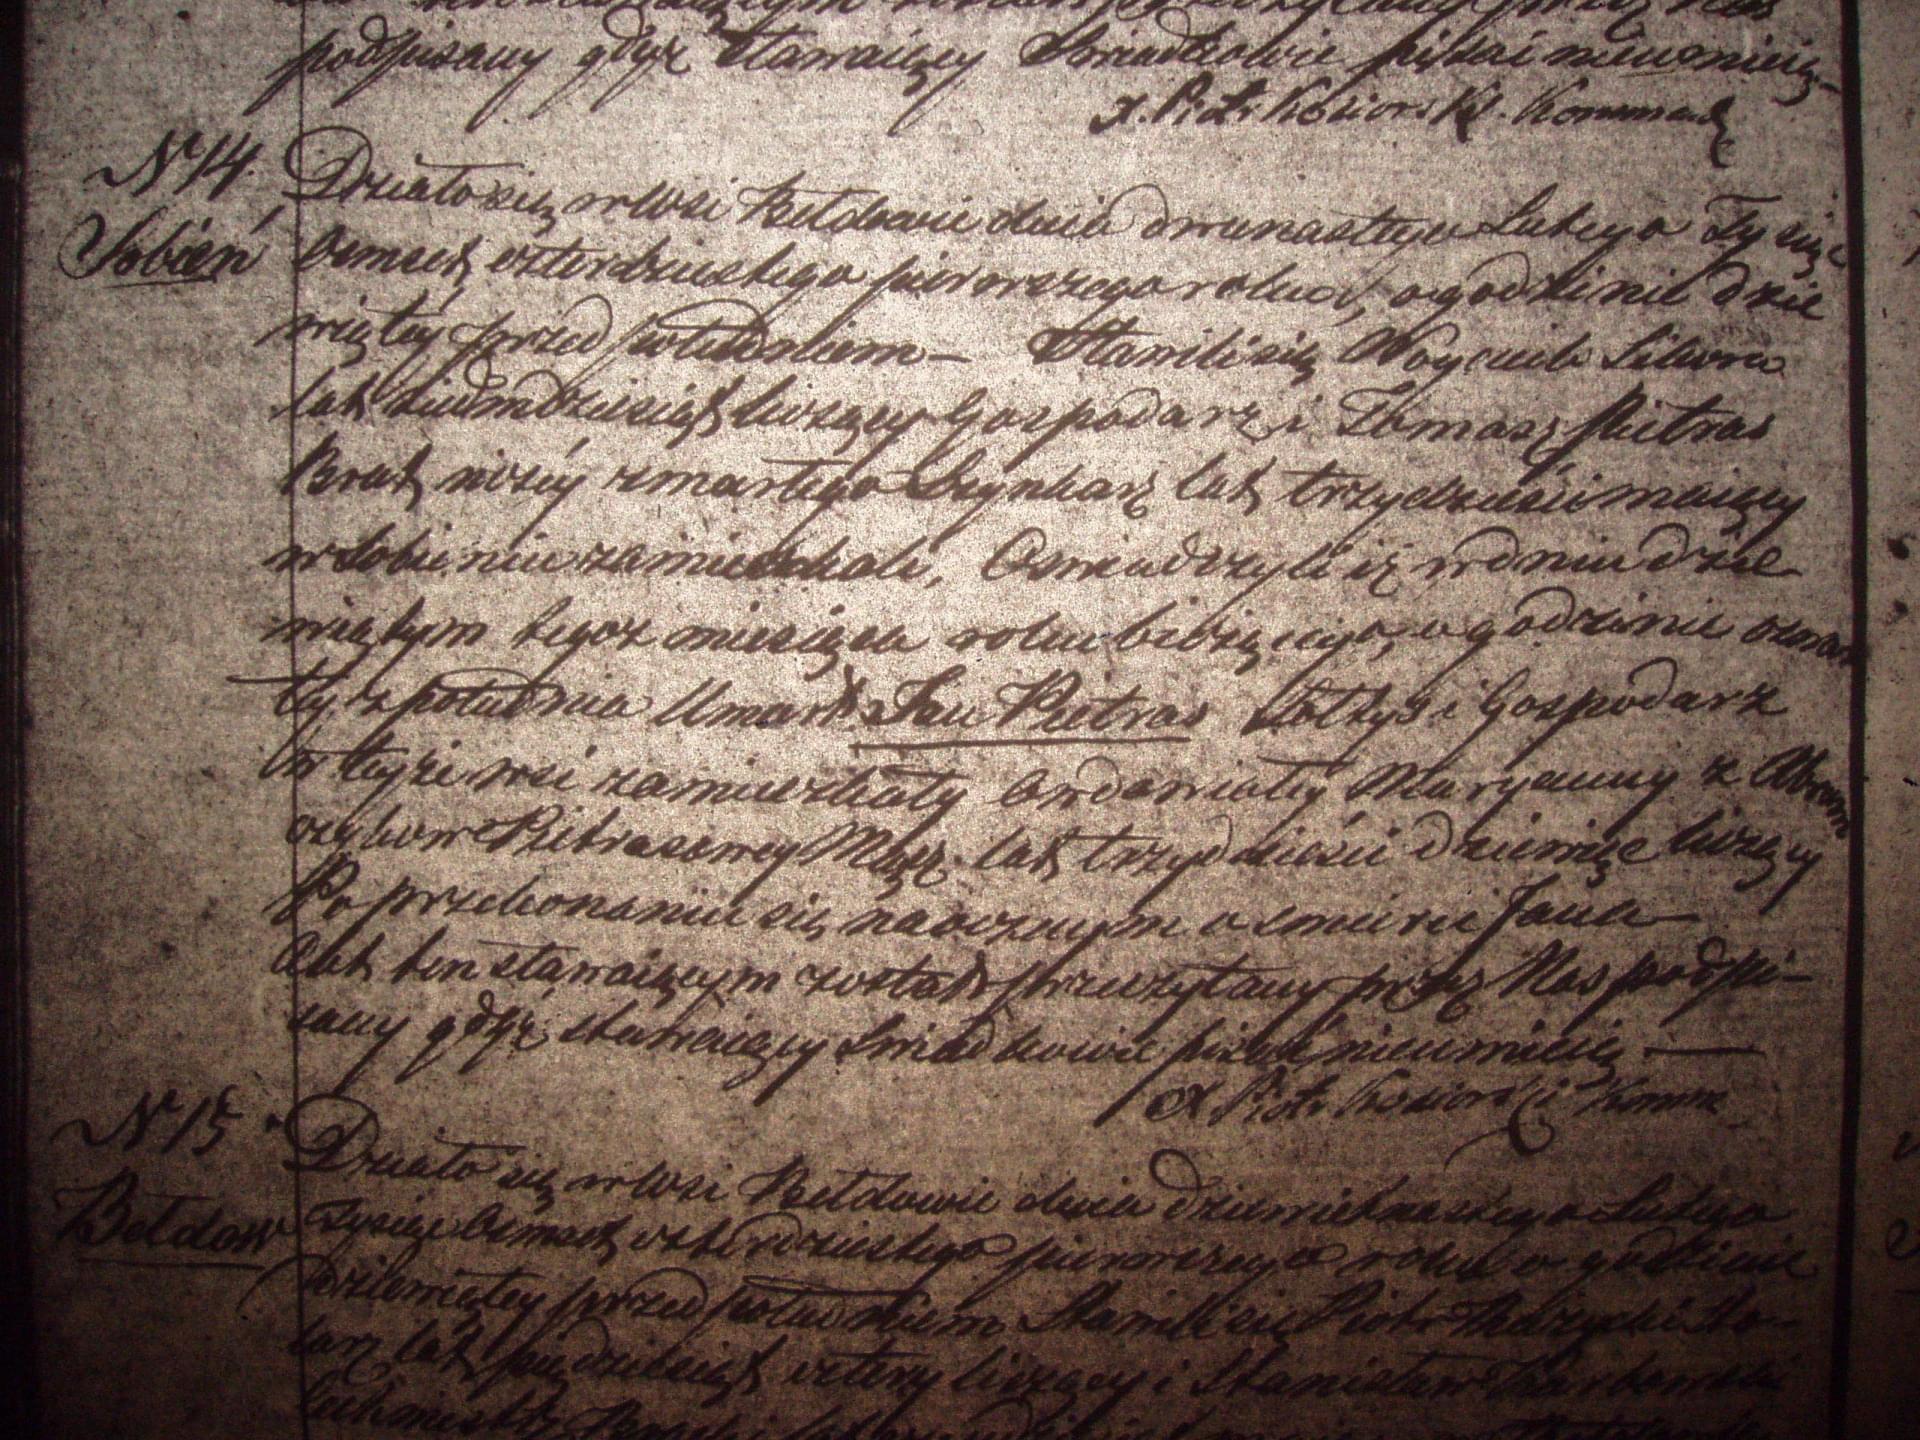 podpisany gdyż Stawaiący Swiadkowie pisać nieumieią
X. Piotr Kosiorski Kommend
Nr 14.
Sobień
Działo się w Wsi Bełdowie dnia dwunastego Lutego Tysiąc
Osmset czterdziestego pierwszego roku, o godzinie dzie
wiątéy przed południem — Stawili się Woyciech Sikora
lat siedmdziesiąt liczący Gospodarz i Tomasz Pietras
Brat niżéy zmarłego Szynkarz lat trzydzieści maiący
w Sobieniu zamieszkali, Oswiadczyli iż w dniu dzie
wiątym tegoż miesiąca roku bieżącego, o godzinie osma
téy z południa Umarł Jan Pietras Sołtys i Gospodarz
w teyże wsi zamieszkały Owdowiałey Maryanny z
Pietrasowey Mąż lat trzydzieści dziewięć liczący
Po przekonaniu się naocznym o smierci Jana —
Akt ten stawaiącym został przeczytany przez Nas podpi-
sany gdyż stawaiący Swiadkowie pisać nieumieią —
X Piotr Kosiorski Komm
Nr 15
Bełdow
Działo się w Wsi Bełdowie dnia dziewietnastego Lutego
Tysiąc Osmset czterdziestego pierwszego roku o godzinie
dziewiątey przed południem Stawili się Piotr Sto-
larz lat piędziesiąt cztery liczący i Stanisław